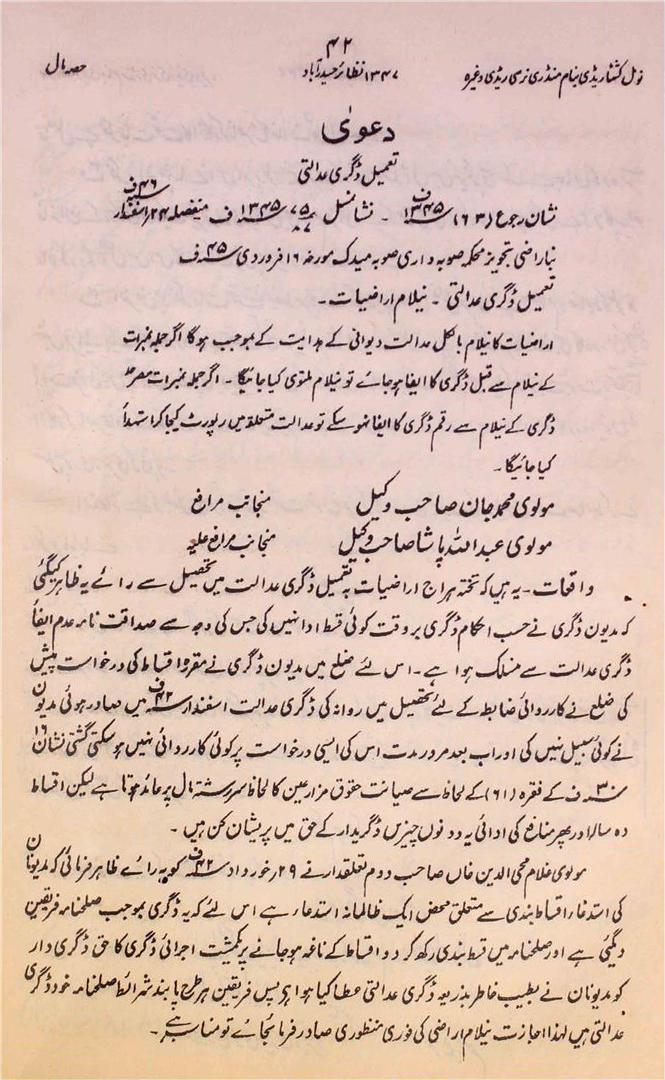 ۴۲
نول کشٹاریڈی بنام منڈری نرسی ریڈی وغیرہ ۱۳۴۷ نظائر حیدرآباد حصہ مال
دعویٰ
تعمیل ڈگری عدالتی
نشان رجوع (۶۳) ۱۳۴۵ف ۔ نشانسل ۷۵ ۱۳۴۵ف منفصلہ ۲۴ اسفندار ۴۶ف
بناراضی تجویز محکمہ صوبہ داری صوبہ میدک مورخہ ۱۶ فروردی ۴۵ف
تعمیل ڈگری عدالتی ۔ نیلام اراضیات ۔
اراضیات کا نیلام بالکل عدالت دیوانی کے ہدایت کے بموجب ہوگا اگر جملہ نمبرات
کے نیلام سے قبل ڈگری کا ایفا ہوجائے تو نیلام ملتوی کیا جائیگا ۔ اگر جملہ نمبرات مصرحہ
ڈگری کے نیلام سے رقم ڈگری کا ایفا نہوسکے تو عدالت متعلقہ میں رپورٹ کیجاکر استہداً
کیا جائیگا ۔
مولوی محمد جان صاحب وکیل منجانب مرافع
مولوی عبداللہ پاشا صاحب وکیل منجانب مرافع علیہ
واقعات ۔ یہ ہیں کہ تختہ ہراج اراضیات بہ تعمیل ڈگری عدالت میں تحصیل سے رائے یہ ظاہر کیگئی
کہ مدیون ڈگری نے حسب احکام ڈگری بروقت کوئی قسط ادا نہیں کی جس کی وجہ سے صداقت نامہ عدم ایفاً
ڈگری عدالت سے منسلک ہوا ہے ۔ اس لئے ضلع میں مدیون ڈگری نے مقررہ اقساط کی درخواست پیش
کی ضلع نے کارروائی ضابطہ کے لئے تحصیل میں روانہ کی ڈگری عدالت اسفندار ۴۲ف میں صادر ہوئی مدیون
نے کوئی سبیل نہیں کی اور اب بعد مرور مدت اس کی ایسی درخواست پر کوئی کارروائی نہیں ہوسکتی گشتی نشان ۱۶
۳۰ف کے فقرہ (۶۱) کے لحاظ سے صیانت حقوق مزارعین کا لحاظ سررشتہ مال پر عائد ہوتا ہے لیکن اقساط
دہ سالہ اور پھر منافع کی ادائی یہ دونوں چیزیں ڈگریدار کے حق میں پریشان کن ہیں ۔
مولوی غلام محی الدین خاں صاحب دوم تعلقدار نے ۲۹ خورداد ۴۲ف کو یہ رائے ظاہر فرمائی کہ مدیونان
کی استدعاء اقساط بندی سے متعلق محض ایک ظالمانہ استدعار ہے اس لئے کہ یہ ڈگری بموجب صلحنامہ فریقین
دیگئی ہے اور صلحنامہ میں قسط بندی رکھ کر دو اقساط کے ناغہ ہوجانے پر یکمشت اجرائی ڈگری کا حق ڈگری دار
کو مدیونان نے بطیب خاطر بذریعہ ڈگری عدالتی عطا کیا ہوا ہے پس فریقین ہر طرح پابند شرائط صلحنامہ خود ڈگری
عدالتی ہیں لہذا اجازت نیلام اراضی کی فوری منظوری صادر فرمائجائے تو مناسب ہے ۔